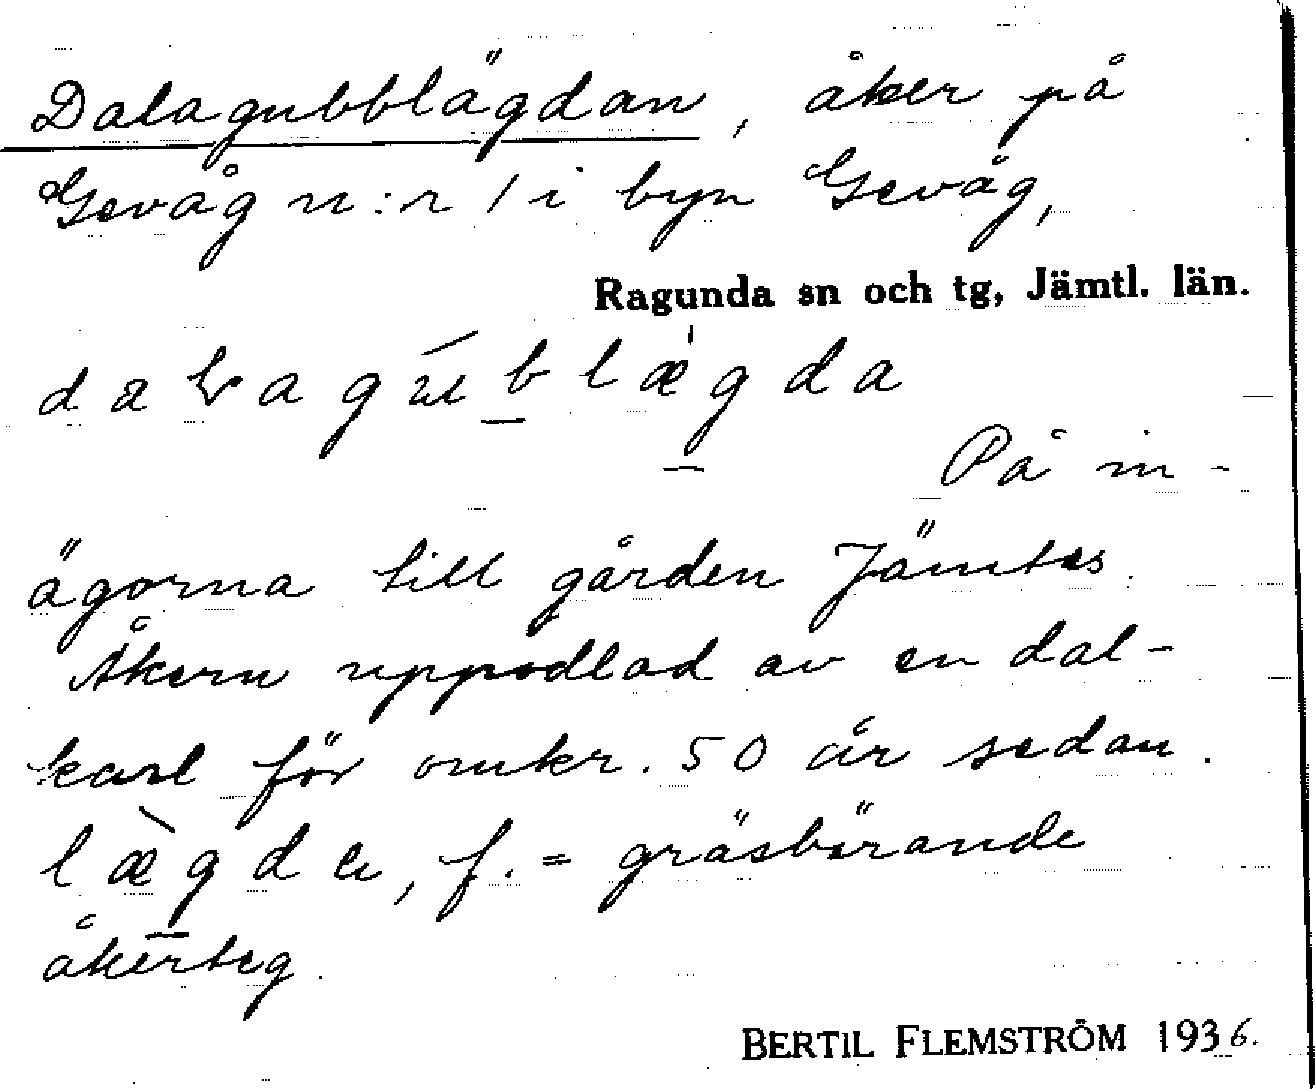 Dalagubblägdan, åker på
Gevåg n:r 1 i byn Gevåg,
Ragunda sn och tg, Jämtl. län.
På in-
ägorna till gården Jämtes.
Åkern uppodlad av en dal-
karl för omkr. 50 år sedan.
lægde, f. = gräsbärande
åkerteg.
BERTIL FLEMSTRÖM 1936.